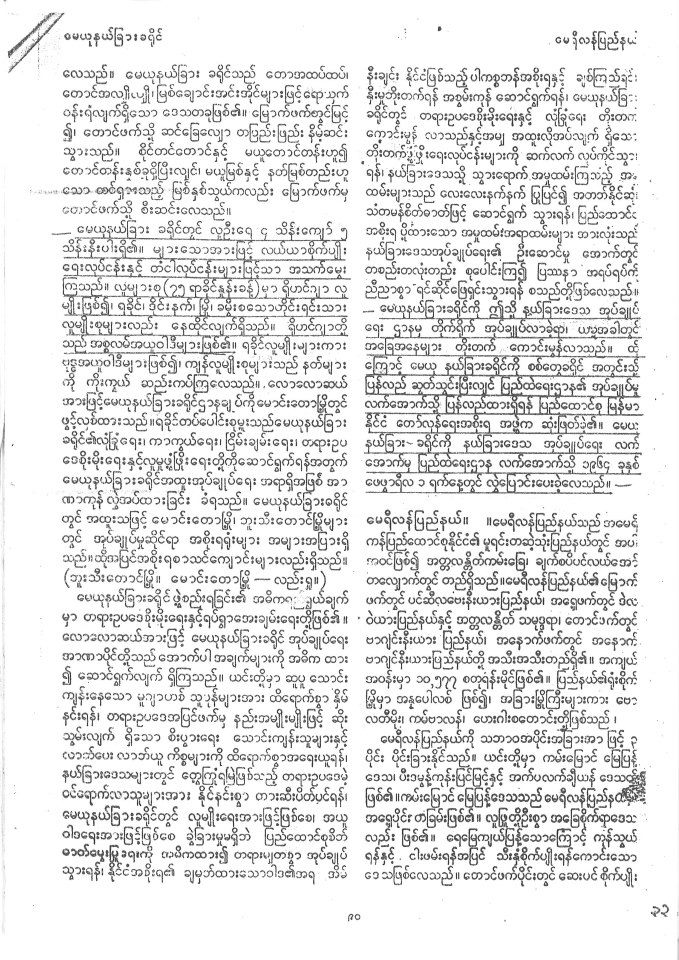 မေယုနယ်ခြားခရိုင်
မေရီလန်ပြည်နယ်
လေသည်။ မေယုနယ်ခြား ခရိုင်သည် တောအထပ်ထပ်၊
တောင်အလျှိုလျှို၊ မြစ်ချောင်းအင်းအိုင်များဖြင့်ရောယှက်
ဝန်းရံလျက်ရှိသော ဒေသတခုဖြစ်၏။ မြောက်ဖက်တွင်မြင့်
၍၊ တောင်ဖက်သို့ ဆင်ခြေလျှော တဖြည်းဖြည်း နိမ့်ဆင်း
သွားသည်။ စိုင်တင်တောင်နှင့် မယူတောင်တန်းဟူ၍
တောင်တန်းနှစ်ခုရှိပြီးလျှင်၊ မယူမြစ်နှင့် နတ်မြစ်တည်းဟူ
သော ထင်ရှားသည့် မြစ်နှစ်သွယ်ကလည်း မြောက်ဖက်မှ
တောင်ဖက်သို့ စီးဆင်းလေသည်။
မေယုနယ်ခြား ခရိုင်တွင် လူဦးရေ ၄ သိန်းကျော် ၅
သိန်းနီးပါးရှိ၏။ များသောအားဖြင့် လယ်ယာစိုက်ပျိုး
ရေးလုပ်ငန်းနှင့် တံငါလုပ်ငန်းများဖြင့်သာ အသက်မွေး
ကြသည်။ လူများစု (၇၅ ရာခိုင်နှုန်းခန့်) မှာ ရိုဟင်ဂျာ လူ
မျိုးဖြစ်၍၊ ရခိုင်၊ ဒိုင်းနက်၊ မြို၊ ခမွီးစသောတိုင်းရင်းသား
လူမျိုးစုများလည်း နေထိုင်လျက်ရှိသည်။ ရိုဟင်ဂျာတို့
သည် အစ္စလမ်အယူဝါဒီများဖြစ်၏။ ရခိုင်လူမျိုးများကား
ဗုဒ္ဓအယူဝါဒီများဖြစ်၍၊ ကျန်လူမျိုးစုများသည် နတ်များ
ကို ကိုးကွယ် ဆည်းကပ်ကြလေသည်။ လောလောဆယ်
အားဖြင့်မေယုနယ်ခြားခရိုင်ဌာနချုပ်ကိုမောင်းတောမြို့တွင်
ဖွင့်လှစ်ထားသည်။ရခိုင်တပ်ပေါင်းစုမှူးသည်မေယုနယ်ခြား
ခရိုင်၏လုံခြုံရေး၊ ကာကွယ်ရေး၊ ငြိမ်းချမ်းရေး၊ တရားဥပ
ဒေစိုးမိုးရေးနှင့်လူမှုဖွံ့ဖြိုးရေးတို့ကိုဆောင်ရွက်ရန်အတွက်
မေယုနယ်ခြားခရိုင်အထူးအုပ်ချုပ်ရေး အရာရှိအဖြစ် အာ
ဏာကုန် လွှဲအပ်ထားခြင်း ခံရသည်။ မေယုနယ်ခြားခရိုင်
တွင် အထူးသဖြင့် မောင်းတောမြို့၊ ဘူးသီးတောင်မြို့များ
တွင် အုပ်ချုပ်မှုဆိုင်ရာ အစိုးရရုံးများ အများအပြားရှိ
သည်။ထို့အပြင်အစိုးရစာသင်ကျောင်းများလည်းရှိသည်။
(ဘူးသီးတောင်မြို့။ မောင်းတောမြို့ — လည်းရှု။)
မေယုနယ်ခြားခရိုင် ဖွဲ့စည်းရခြင်း၏ အဓိကရည်ရွယ်ချက်
မှာ တရားဥပဒေစိုးမိုးရေးနှင့်ရပ်ရွာအေးချမ်းရေးတို့ဖြစ်၏။
လောလောဆယ်အားဖြင့် မေယုနယ်ခြားခရိုင် အုပ်ချုပ်ရေး
အာဏာပိုင်တို့သည် အောက်ပါ အချက်များကို အဓိက ထား
၍ ဆောင်ရွက်လျက် ရှိကြသည်။ ယင်းတို့မှာ ဆူပူ သောင်း
ကျန်းနေသော မူဂျာဟစ် သူပုန်များအား ထိရောက်စွာ နှိမ်
နင်းရန်၊ တရားဥပဒေအပြင်ဖက်မှ နည်းအမျိုးမျိုးဖြင့် ဆိုး
သွမ်းလျက် ရှိသော စီးပွားရေး သောင်းကျန်းသူများနှင့်
လာဘ်ပေး လာဘ်ယူ ကိစ္စများကို ထိရောက်စွာအရေးယူရန်၊
နယ်ခြားဒေသများတွင် တွေ့ကြုံရမြဲဖြစ်သည့် တရားဥပဒေမဲ့
ဝင်ရောက်လာသူများအား နိုင်နင်းစွာ တားဆီးပိတ်ပင်ရန်၊
မေယုနယ်ခြားခရိုင်တွင် လူမျိုးရေးအားဖြင့်ဖြစ်စေ၊ အယူ
ဝါဒရေးအားဖြင့်ဖြစ်စေ ခွဲခြားမှုမရှိဘဲ ပြည်ထောင်စုစိတ်
ဓာတ်မွေးမြူရေးကို အဓိကထား၍ တရားမျှတစွာ အုပ်ချုပ်
သွားရန်၊ နိုင်ငံအစိုးရ၏ ချမှတ်ထားသောဝါဒ၏အရ အိမ်
နီးချင်း နိုင်ငံဖြစ်သည့် ပါကစ္စတန်အစိုးရနှင့် ချစ်ကြည်ရင်း
နှီးမှုမိုးတက်ရန် အစွမ်းကုန် ဆောင်ရွက်ရန်၊ မေယုနယ်ခြား
ခရိုင်တွင် တရားဥပဒေစိုးမိုးရေးနှင့် လုံခြုံရေး တိုးတက်
ကောင်းမွန် လာသည်နှင့်အမျှ အထူးလိုအပ်လျက် ရှိသော
တိုးတက်ဖွံ့ဖြိုးရေးလုပ်ငန်းများကို ဆက်လက် လုပ်ကိုင်သွား
ရန်၊ နယ်ခြားဒေသသို့ သွားရောက် အမှုထမ်းကြသည့် အမှု
ထမ်းများသည် လေးလေးနက်နက် ပြုပြင်၍ အဘတ်နိုင်ဆုံး
သံတမန်စိတ်ဓာတ်ဖြင့် ဆောင်ရွက် သွားရန်၊ ပြည်ထောင်စု
အစိုးရ၌ရှိထားသော အမှုထမ်းအရာထမ်းများ အားလုံးသည်
နယ်ခြားဒေသအုပ်ချုပ်ရေး၏ ဦးဆောင်မှု အောက်တွင်
တစည်းတလုံးတည်း စုပေါင်းကြ၍ ပြဿနာ အရပ်ရပ်ကို
ညီညာစွာ ရင်ဆိုင်ဖြေရှင်းသွားရန် စသည်တို့ဖြစ်လေသည်။
မေယုနယ်ခြားခရိုင်ကို ဤသို့ နယ်ခြားဒေသ အုပ်ချုပ်
ရေး ဌာနမှ တိုက်ရိုက် အုပ်ချုပ်လာခဲ့ရာ၊ ယခုအခါတွင်
အခြေအနေများ တိုးတက် ကောင်းမွန်လာသည်။ ထို့
ကြောင့် မေယု နယ်ခြားခရိုင်ကို စစ်တွေခရိုင် အတွင်းသို့
ပြန်လည် ဆုတ်သွင်းပြီးလျှင် ပြည်ထဲရေးဌာန၏ အုပ်ချုပ်မှု
လက်အောက်သို့ ပြန်လည်ထားရှိရန် ပြည်ထောင်စု မြန်မာ
နိုင်ငံ တော်လှန်ရေးအစိုးရ အဖွဲ့က ဆုံးဖြတ်ခဲ့၏။ မေယု
နယ်ခြား ခရိုင်ကို နယ်ခြားဒေသ အုပ်ချုပ်ရေး လက်
အောက်မှ ပြည်ထဲရေးဌာန လက်အောက်သို့ ၁၉၆၄ ခုနှစ်
ဖေဖော်ဝါရီလ ၁ ရက်နေ့တွင် လွှဲပြောင်းပေးခဲ့လေသည်။
မေရီလန်ပြည်နယ်။ ။မေရီလန်ပြည်နယ်သည် အမေရိ
ကန်ပြည်ထောင်စုနိုင်ငံ၏ မူရင်းတဆဲ့သုံးပြည်နယ်တွင် အပါ
အဝင်ဖြစ်၍ အတ္တလန္တိတ်ကမ်းခြေ၊ ချက်စပိပင်လယ်အော်
တလျှောက်တွင် တည်ရှိသည်။မေရီလန်ပြည်နယ်၏မြောက်
ဖက်တွင် ပင်ဆီလဗေးနီးယားပြည်နယ်၊ အရှေ့ဖက်တွင် ဒဲလ
ဝဲယားပြည်နယ်နှင့် အတ္တလန္တိတ် သမုဒ္ဒရာ၊ တောင်ဖက်တွင်
ဗာဂျင်းနီးယား ပြည်နယ်၊ အနောက်ဖက်တွင် အနောက်
ဗာဂျင်နီးယားပြည်နယ်တို့ အသီးအသီးတည်ရှိ၏။ အကျယ်
အဝန်းမှာ ၁၀,၅၇၇ စတုရန်းမိုင်ဖြစ်၏။ ပြည်နယ်၏ရုံးစိုက်
မြို့မှာ အနူပေါလစ် ဖြစ်၍၊ အခြားမြို့ကြီးများကား ဗော
လတီမိုး၊ ကမ်ဗာလန်၊ ဟေးဂါးစတောင်းတို့ဖြစ်သည် ၊
မေရီလန်ပြည်နယ်ကို သဘာဝအပိုင်းအခြားအာ ဖြင့် ၃
ပိုင်း ပိုင်းခြားနိုင်သည်။ ယင်းတို့မှာ ကမ်းမြောင် မြေပြန့်
ဒေသ၊ ပီးဒမွန့်ကုန်းပြင်မြင့်နှင့် အက်ပလက်ချီယန် ဒေသတို့
ဖြစ်၏။ကမ်းမြောင်မြေပြန့်ဒေသသည်မေရီလန်ပြည်နယ်၏
အရှေ့ပိုင်း တခြမ်းဖြစ်၏။ လူဖွံ့တို့ဦးစွာ အခြေစိုက်ရာဒေသ
လည်း ဖြစ်၏။ ရေမြေကျယ်ပြန့်သောကြောင့် ကုန်သွယ်
ရန်နှင့် ငါးဖမ်းရန်အပြင် သီးနှံစိုက်ပျိုးရန်ကောင်းသော
ဒေသဖြစ်လေသည်။ တောင်ဖက်ပိုင်းတွင် ဆေးပင် စိုက်ပျိုး
၉၀
၃၃